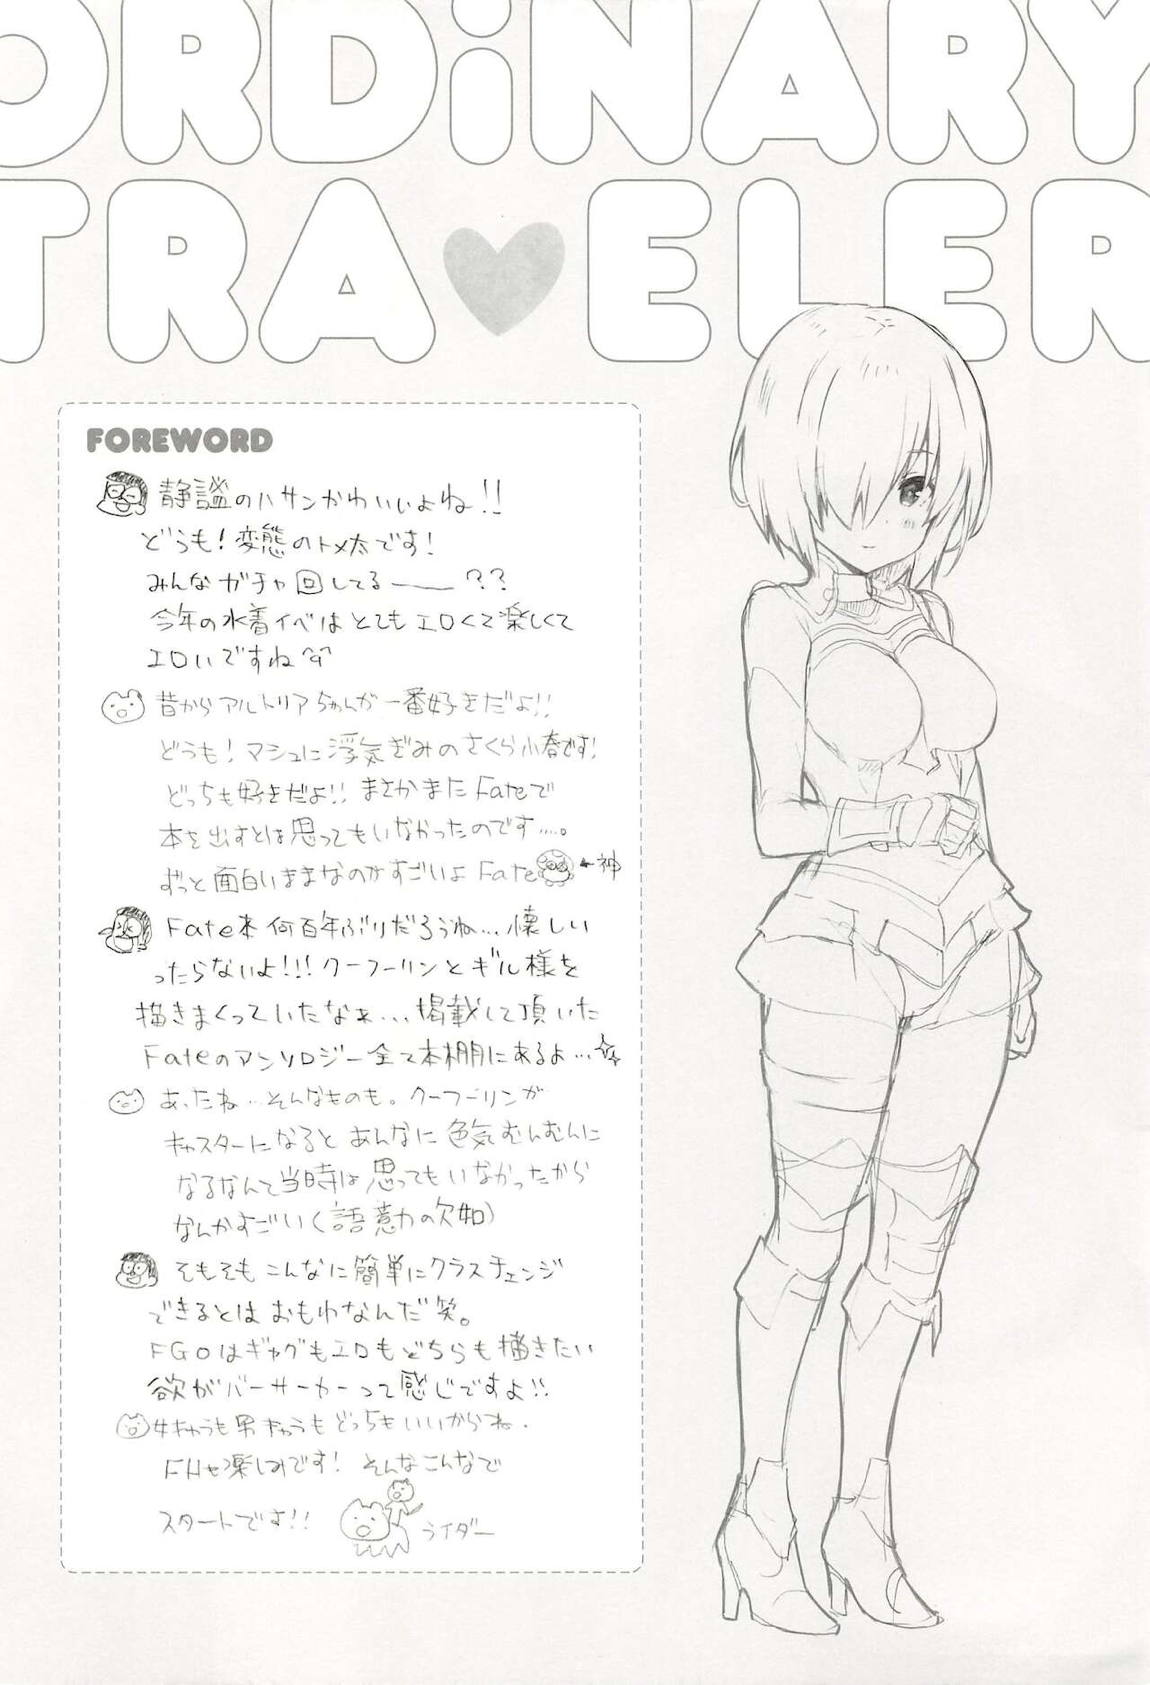 ORDiNARY
TRA♥ELER
FOREWORD
静謐のハサンかわいいよね!!
どうも!変態のトメ太です!
みんなガチャ回してるー??
今年の水着イベはとてもエロくて楽しくて
エロいですね
昔からアルトリアちゃんが一番好きだよ!!
どうも!マシュに浮気ぎみのさくら小春です!
どっちも好きだよ!!まさかまたFateで
本を出すとは思ってもいなかったのです....。
ずっと面白いままなのがすごいよFate←神
Fate本何百年ぶりだろうね...懐しい
ったらないよ!!!クーフーリンとギル様を
描きまくっていたなぁ...掲載して頂いた
Fateのアンソロジー全て本棚にあるよ...☆
あったね...そんなものも。クーフーリンが
キャスターになるとあんなに色気むんむんに
なるなんて当時は思ってもいなかったから
なんかすごい(語意力の欠如)
そもそもこんなに簡単にクラスチェンジ
できるとはおもわなんだ笑。
FGOはギャグもエロもどちらも描きたい
欲がバーサーカーって感じですよ!!
女キャラも男キャラもどっちもいいからね.
楽しみです!そんなこんなで
スタートです!!
ライダー